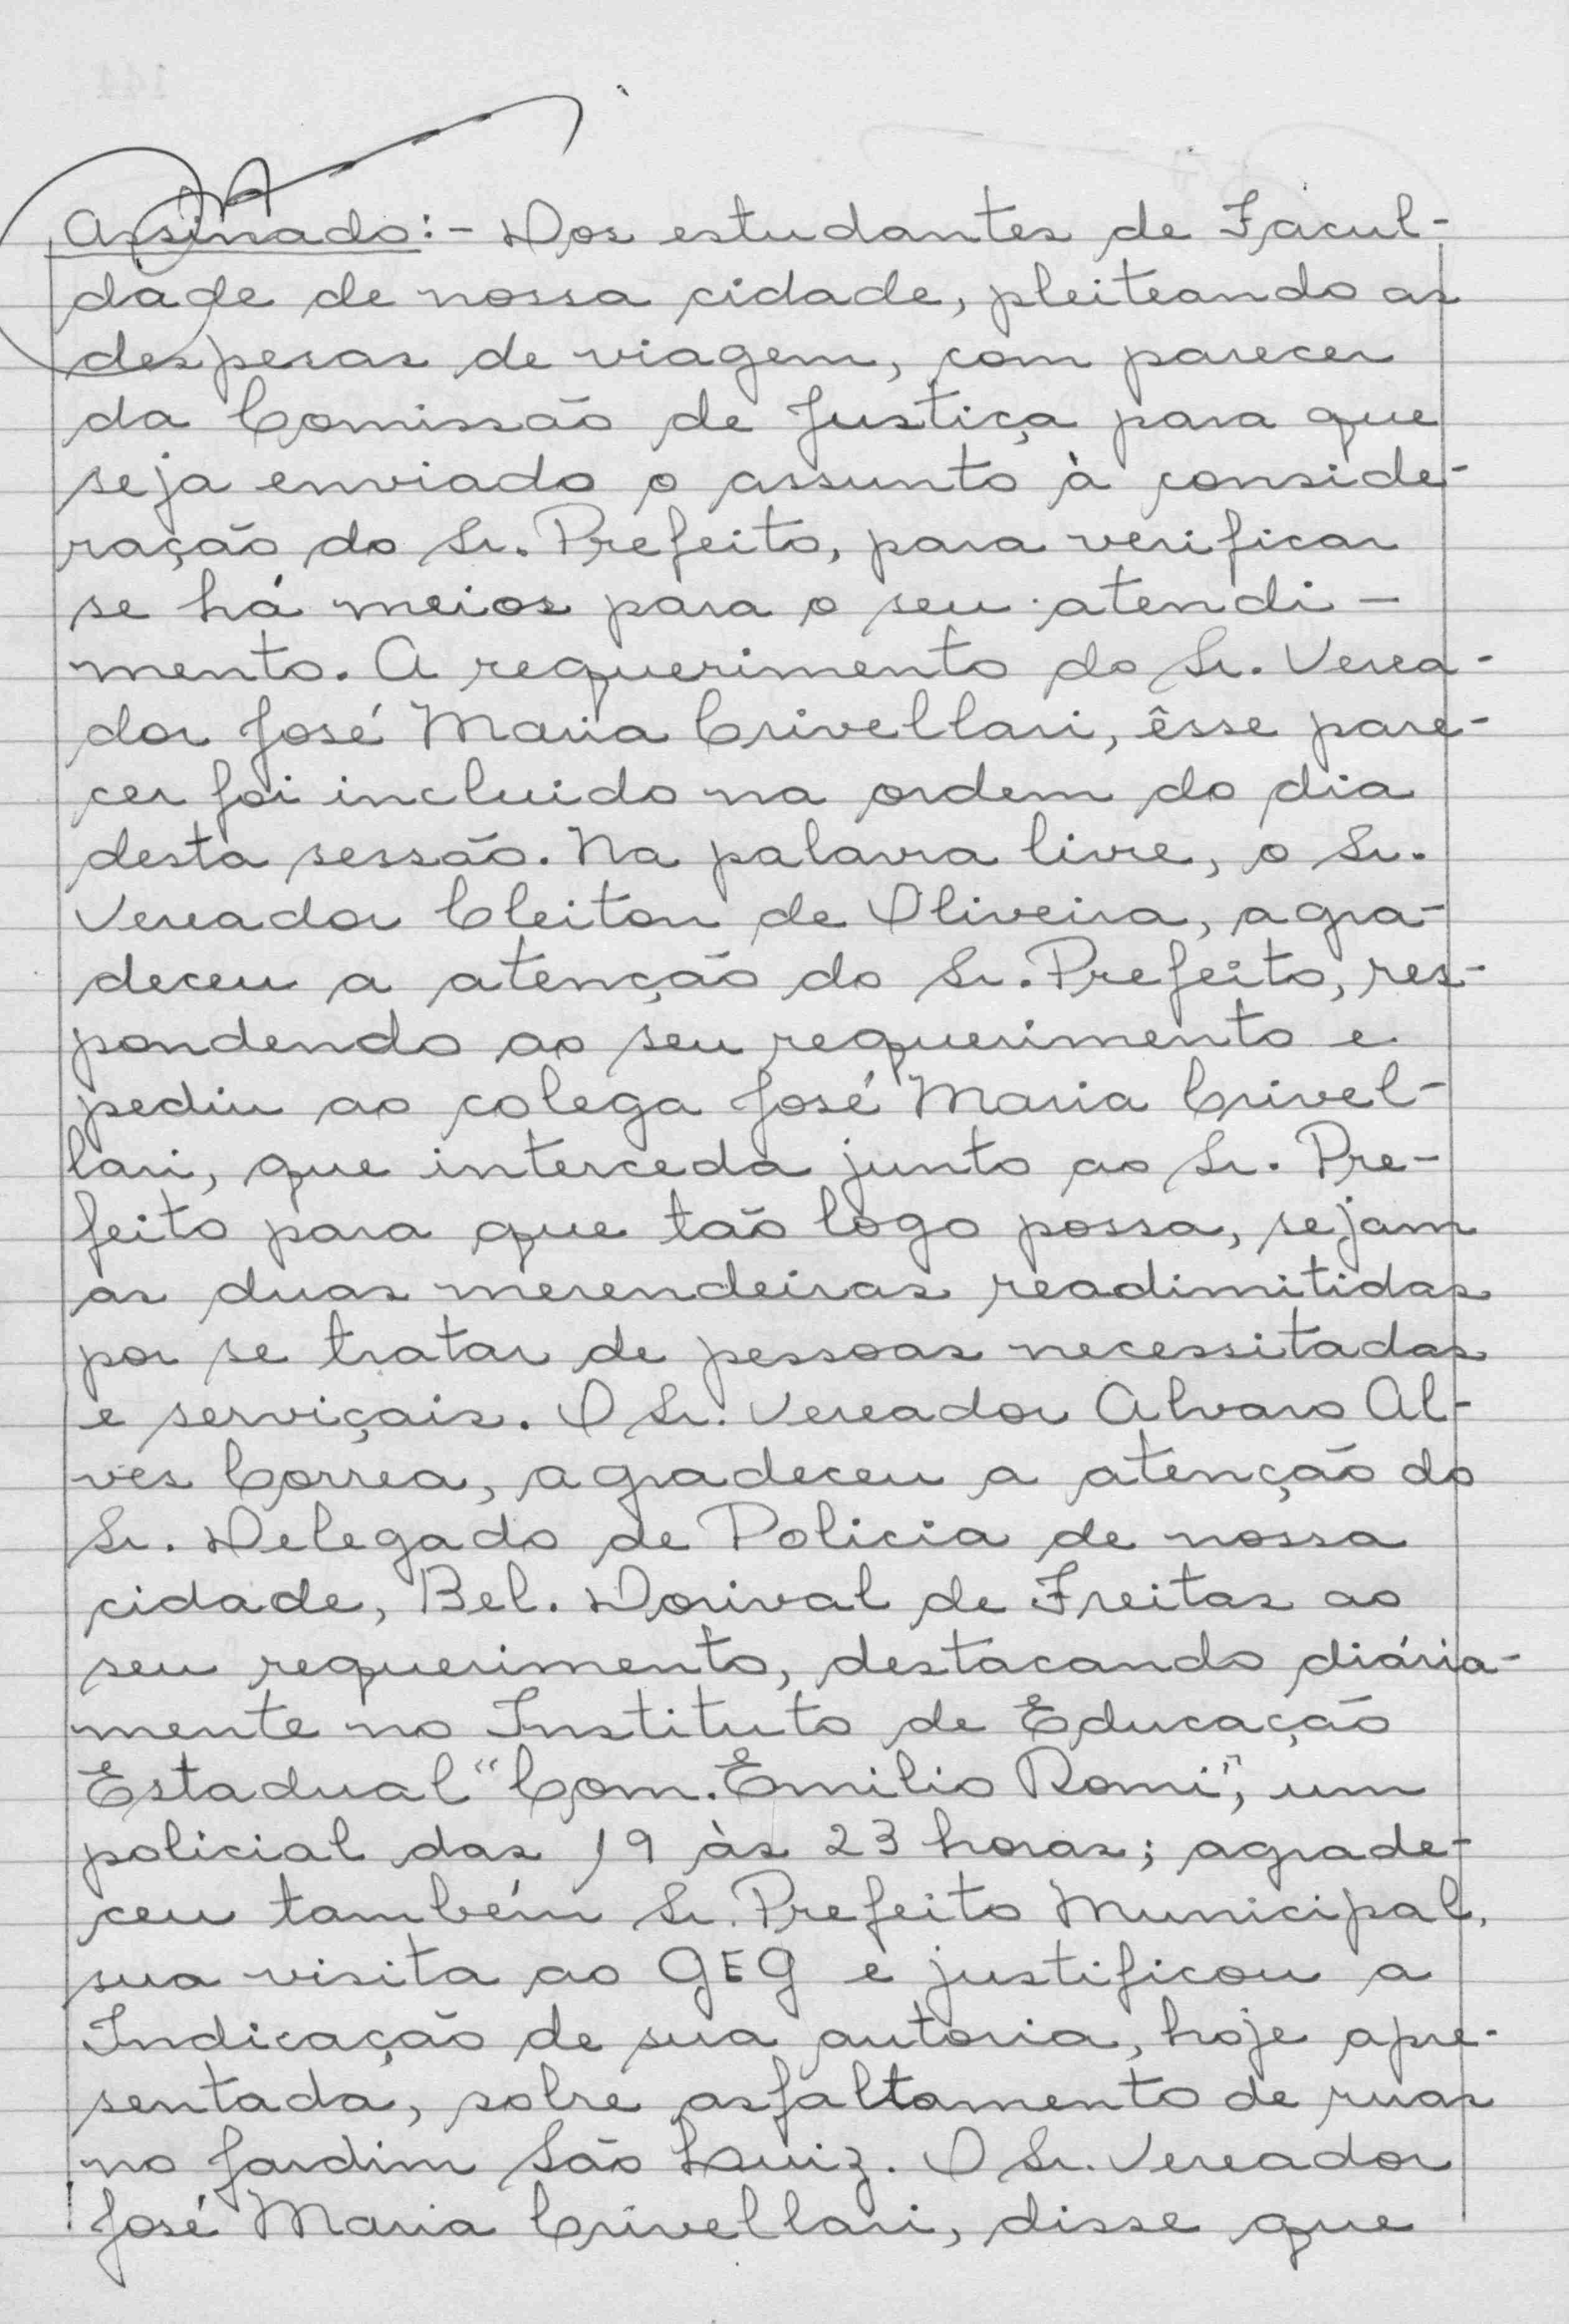 Assinado:- Dos estudantes de Facul-
dade de nossa cidade, pleiteando as
despesas de viagem, com parecer
da Comissão de Justiça para que
seja enviado o assunto à conside-
ração do Sr. Prefeito, para verificar
se há meios para o seu atendi-
mento. A requerimento do Sr. Verea-
dor José Maria Crivellari, êsse pare-
cer foi incluido na ordem do dia
desta sessão. Na palavra livre, o Sr.
Vereador Cleiton de Oliveira, agra-
deceu a atenção do Sr. Prefeito, res-
pondendo ao seu requerimento e
pediu ao colega José Maria Crivel-
lari, que interceda junto ao Sr. Pre-
feito para que tão logo possa, sejam
as duas merendeiras readimitidas
por se tratar de pessoas necessitadas
e serviçais. O Sr. Vereador Alvaro Al-
ves Correa, agradeceu a atenção do
Sr. Delegado de Policia de nossa
cidade, Bel. Dorival de Freitas ao
seu requerimento, destacando diária-
mente no Instituto de Educação
Estadual "Com. Emilio Romi", um
policial das 19 às 23 horas; agrade-
ceu também Sr. Prefeito Municipal,
sua visita ao GEG e justificou a
Indicação de sua autoria, hoje apre-
sentada, sobre asfaltamento de ruas
no Jardim São Luiz. O Sr. Vereador
José Maria Crivellari, disse que